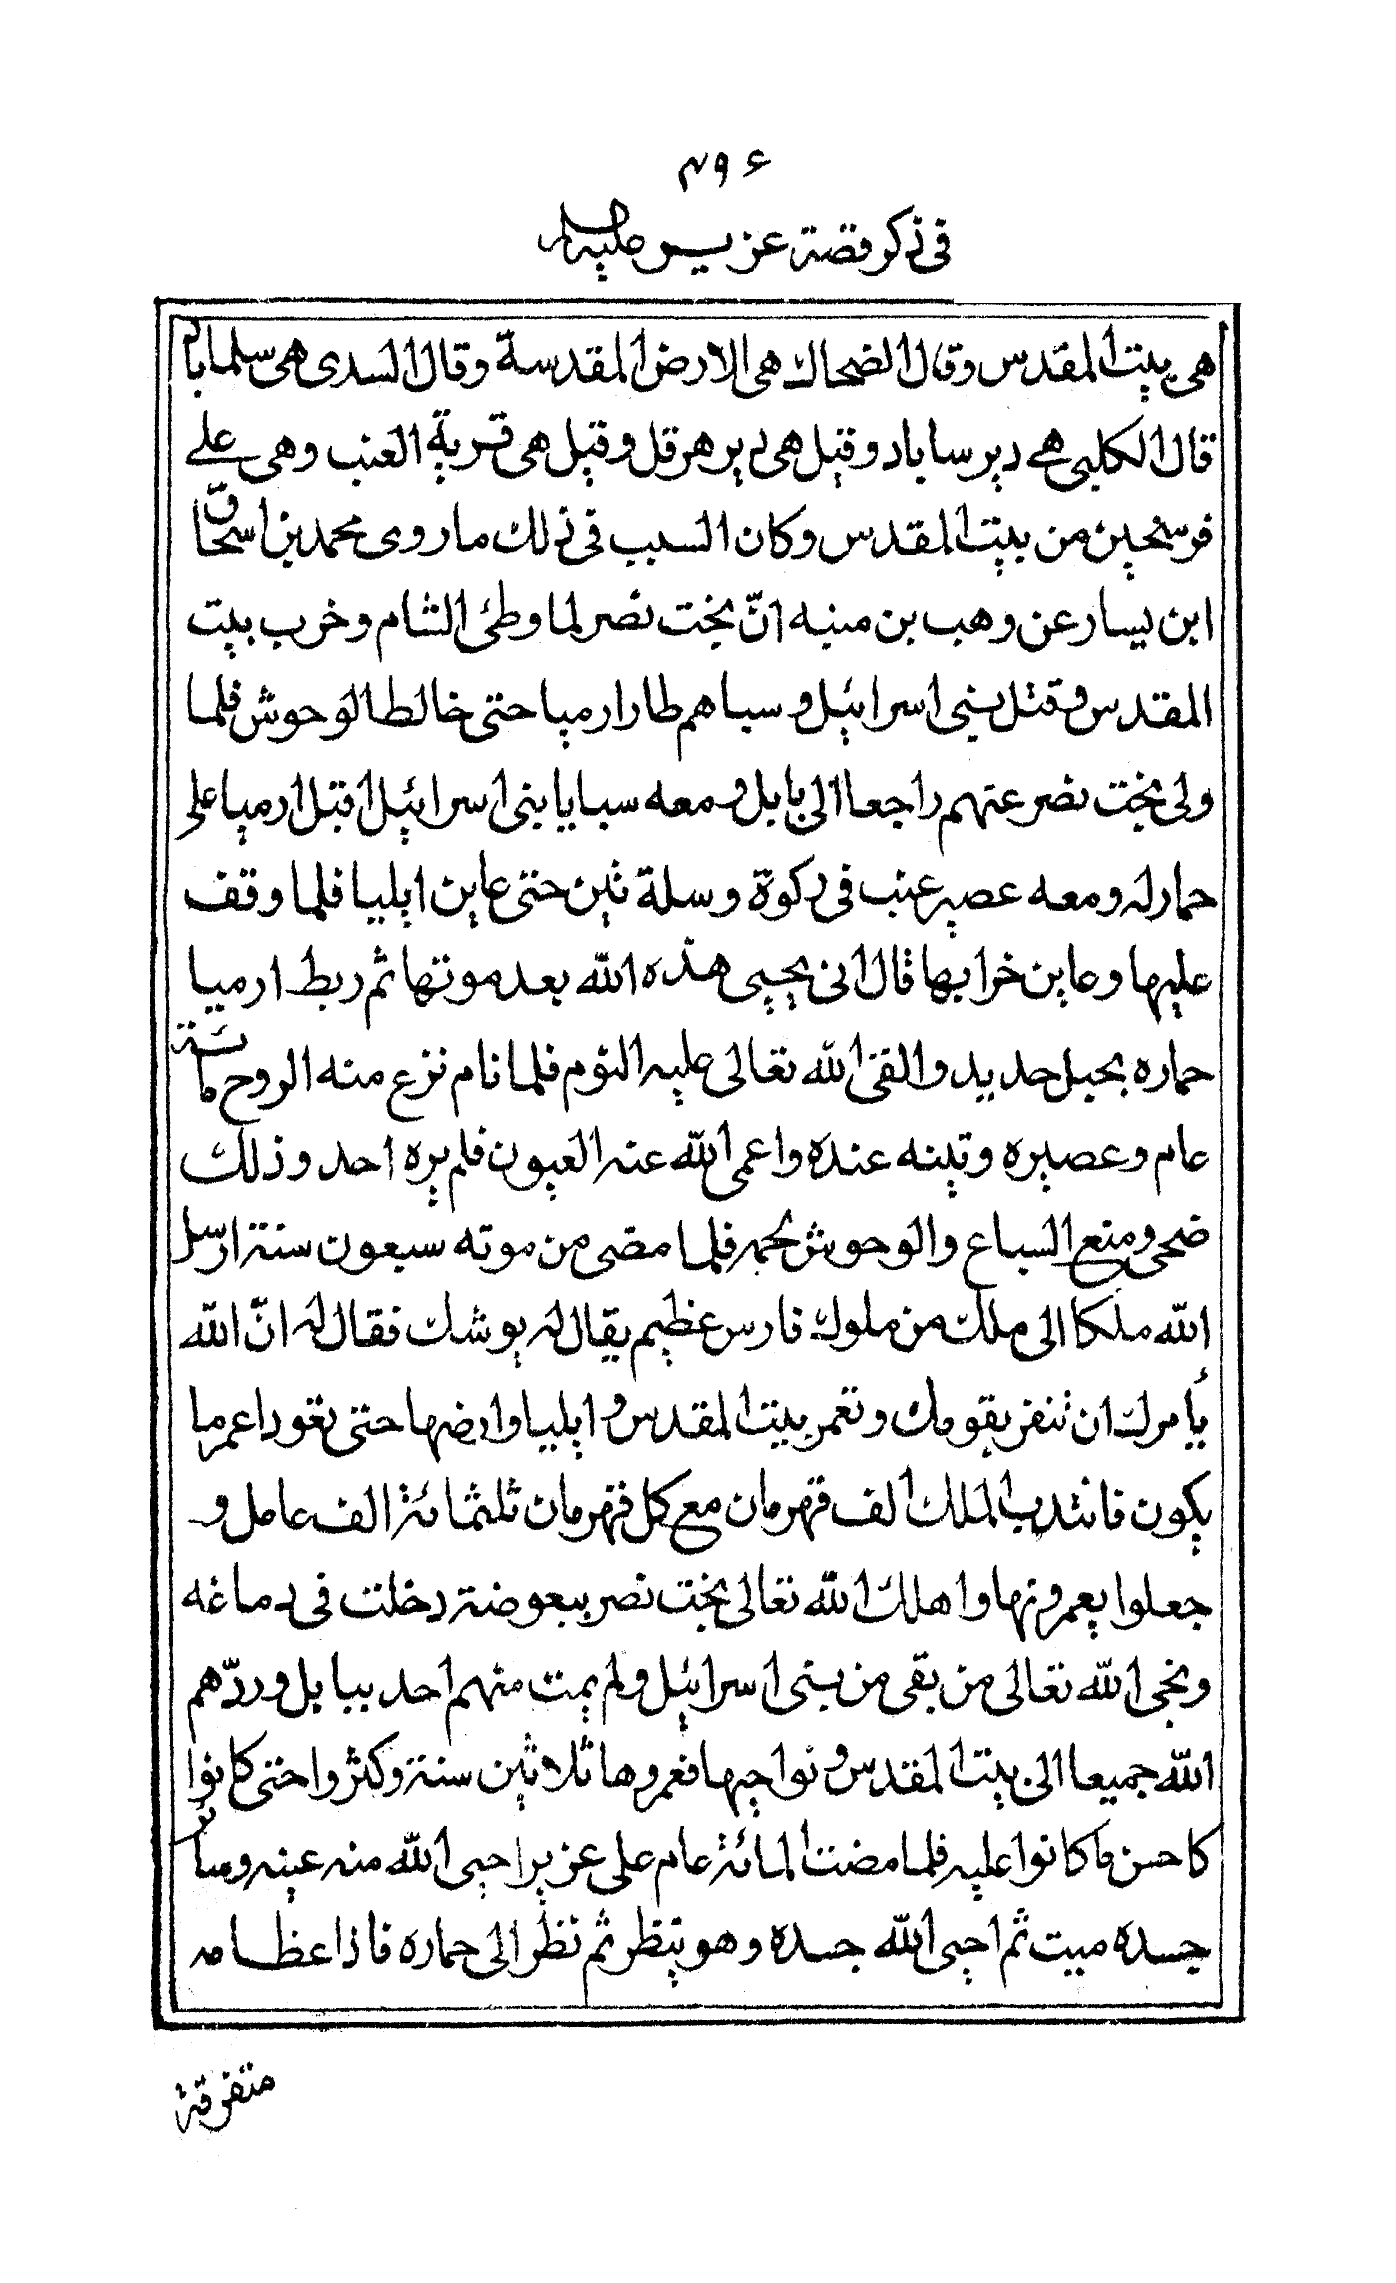 ٤٩٤
في ذكر قصة عزير عليه السلم
هي بيت المقدس وقال الضحاك هي الارض المقدسة وقال السدي هي سلماباد
قال الكلبي هي دير ساباد وقيل هي دير هرقل وقيل هي قرية العنب وهي على
فرسخين من بيت المقدس وكان السبب في ذلك ما روى محمد بن اسحاق
ابن يسار عن وهب بن منبه انّ بخت نصر لما وطئ الشام وخرب بيت
المقدس وقتل بني اسرائيل وسباهم طار ارميا حتى خالط الوحوش فلما
ولى بخت نصر عنهم راجعا الى بابل ومعه سبايا بني اسرائيل اقبل ارميا على
حمار له ومعه عصير عنب في ركوة وسلة تين حتى عاين ايليا فلما وقف
عليها وعاين خرابها قال انى يحيي هذه الله بعد موتها ثم ربط ارميا
حماره بحبل جديد والقى الله تعالى عليه النوم فلما نام نزع منه الروح مائة
عام وعصيره وتينه عنده واعمى الله عنه العيون فلم يره احد وذلك
ضحى ومنع السباع والوحوش لحمه فلما مضى من موته سبعون سنة ارسل
الله ملكا الى ملك من ملوك فارس عظيم يقال له يوشك فقال له انّ الله
يأمرك ان تنفر بقومك وتعمر بيت المقدس وايليا وارضها حتى تعود اعمر ما
يكون فانتدب الملك الف قهرمان مع كل قهرمان ثلثمائة الف عامل و
جعلوا يعمرونها واهلك الله تعالى بخت نصر ببعوضة دخلت في دماغه
ونجى الله تعالى من بقى من بني اسرائيل ولم يمت منهم احد ببابل وردّهم
الله جميعا الى بيت المقدس ونواحيها فعمروها ثلاثين سنة وكثروا حتى كانوا
كاحسن ما كانوا عليه فلما مضت المائة عام على عزير احيى الله منه عينه وسائر
جسده ميت ثم احيى الله جسده وهو ينظر ثم نظر الى حماره فاذا عظامه
متفرقة